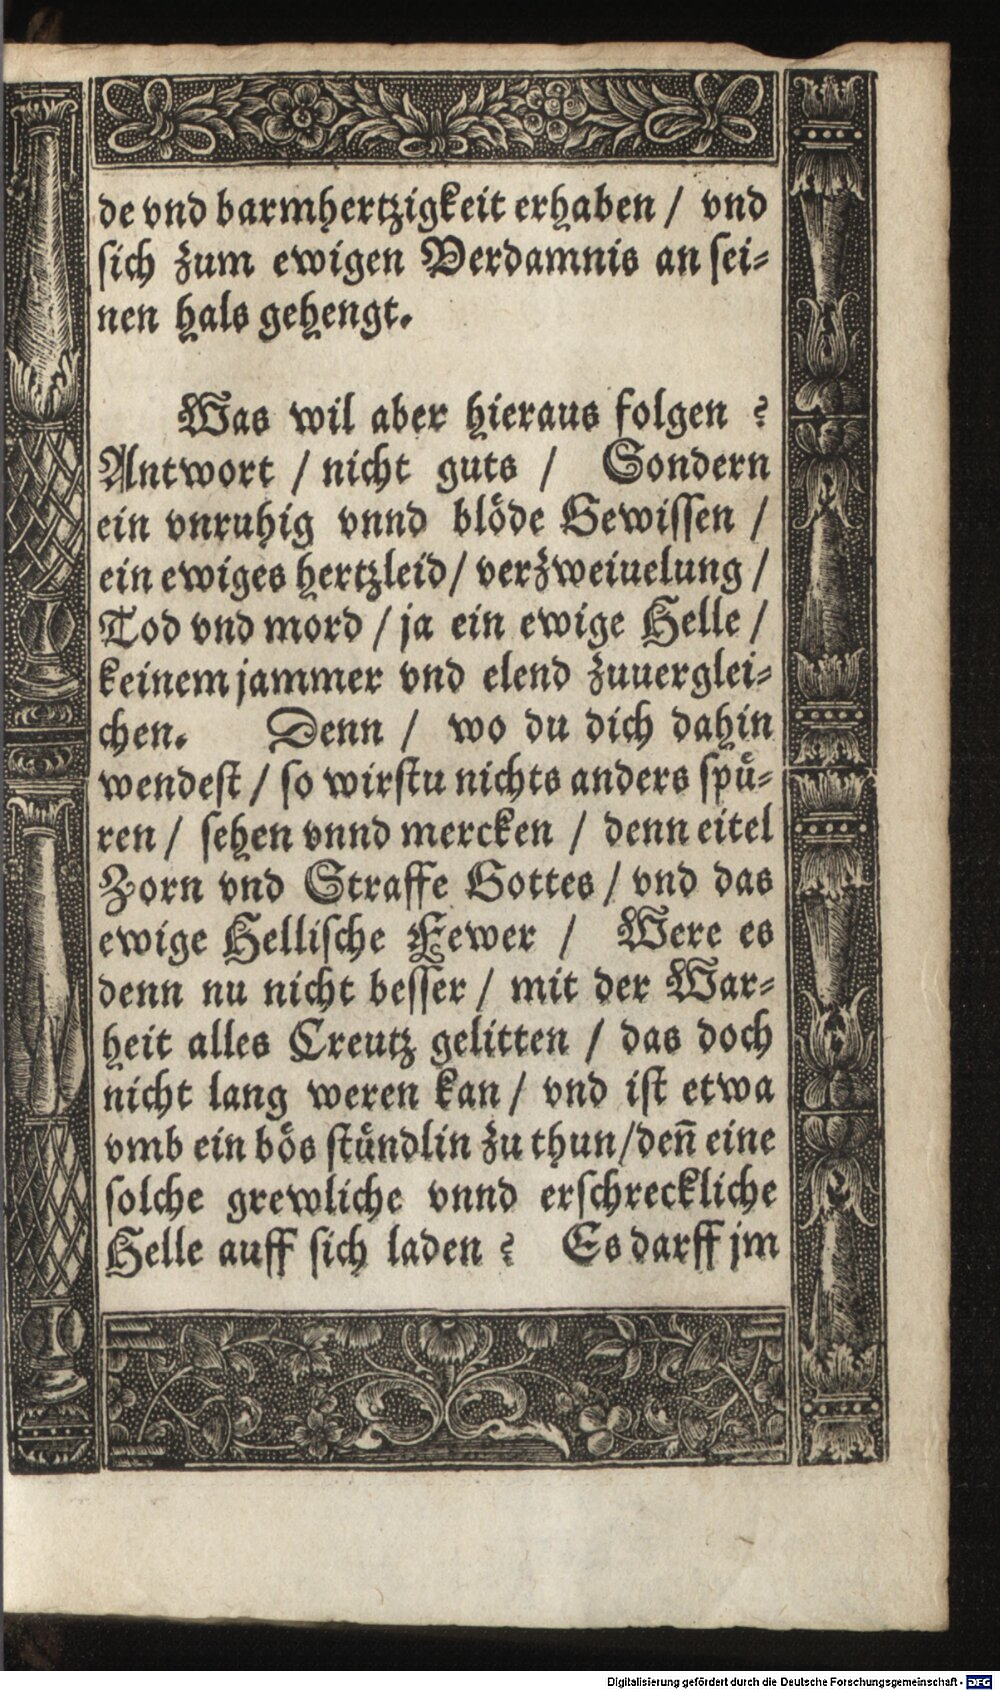 de vnd barmhertzigkeit erhaben / vnd
sich zum ewigen Verdamnis an sei-
nen hals gehengt.
Was wil aber hieraus folgen ?
Antwort / nicht guts / Sondern
ein vnruhig vnnd blöde Gewissen /
ein ewiges hertzleid / verzweiuelung /
Tod vnd mord / ja ein ewige Helle /
keinem jammer vnd elend zuuerglei-
chen. Denn / wo du dich dahin
wendest / so wirstu nichts anders spü-
ren / sehen vnnd mercken / denn eitel
Zorn vnd Straffe Gottes / vnd das
ewige Hellische Fewer / Were es
denn nu nicht besser / mit der War-
heit alles Creutz gelitten / das doch
nicht lang weren kan / vnd ist etwa
vmb ein bös stündlin zu thun / deñ eine
solche grewliche vnnd erschreckliche
Helle auff sich laden ? Es darff jm
Digitalisierung gefördert durch die Deutsche Forschungsgemeinschaft - DFG